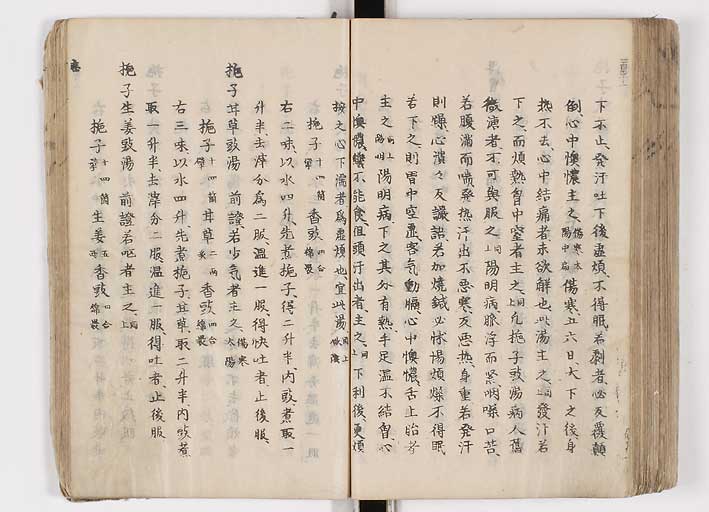 下不止、發汗吐下後虛煩不得眠、若劇者、必反覆顛
倒、心中懊憹、主之、傷寒本陽中扁傷寒五六日、大下之後、身
熱不去、心中結痛者、未欲解也、此湯主之、同上發汗若
下之、而煩熱胷中窒者、主之、同上凡梔子豉湯、病人舊
微溏者、不可與服之、同上陽明病、脈浮而緊、咽噪口苦、
若腹滿而喘、發熱汗出、不惡寒、反惡熱、身重、若發汗
則燥、心潰々反讝語、若加燒鍼必怵惕煩燥不得眠
若下之、則胃中空虛、客氣動膈、心中懊憹、舌上胎者、
主之、同上陽明陽明病下之、其外有熱、手足溫、不結胷、心
中懊憹、飢不能食、但頭汗出者、主之、同上下利後更煩
按之心下濡者、爲虛煩也、宜此湯、同上
梔子十四箇擘香豉四合綿裹
右二味、以水四升、先煮梔子、得二升半、內豉、煮取一
升半、去滓、分爲二服、溫進一服、得快吐者、止後服、
梔子甘草豉湯 前證、若少气者、主之、傷寒太陽
梔子十四箇擘甘草二兩香豉四合綿裹
右三味、以水四升、先煮梔子甘草、取二升半、內豉、煮
取一升半、去滓、分二服、溫進一服、得吐者、止後服
梔子生姜豉湯 前證、若嘔者、主之、同上
梔子十四箇擘生姜五香豉四合綿裹